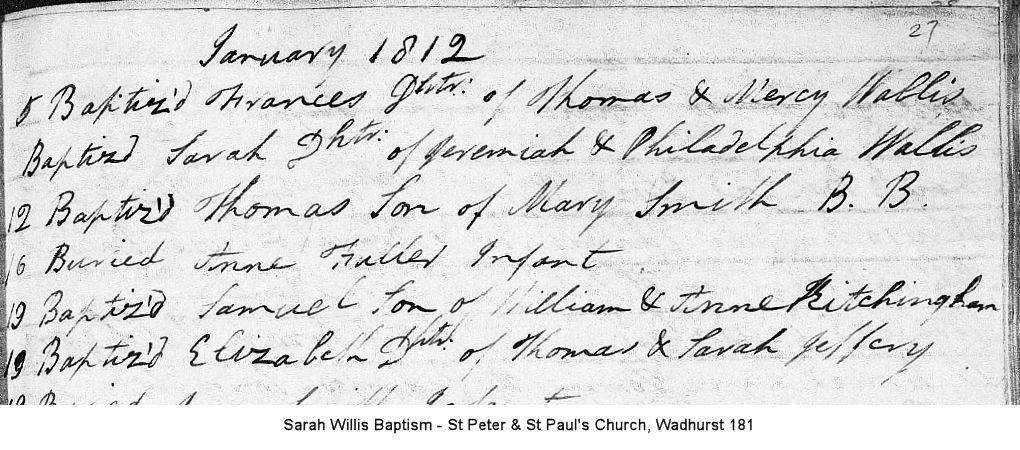 27
January 1812
5 Baptiz'd Frances Dhtr: of Thomas & Mercy Wallis
Baptizd Sarah Dhtr: of Jeremiah & Philadelphia Wallis
12 Baptiz'd Thomas Son of Mary Smith B. B.
16 Buried Anne Fuller Infant
19 Baptiz'd Samuel Son of William & Anne Kitchingham
19 Baptiz'd Elizabeth Dhtr: of Thomas & Sarah Jeffery
Sarah Willis Baptism - St Peter & St Paul's Church, Wadhurst 181